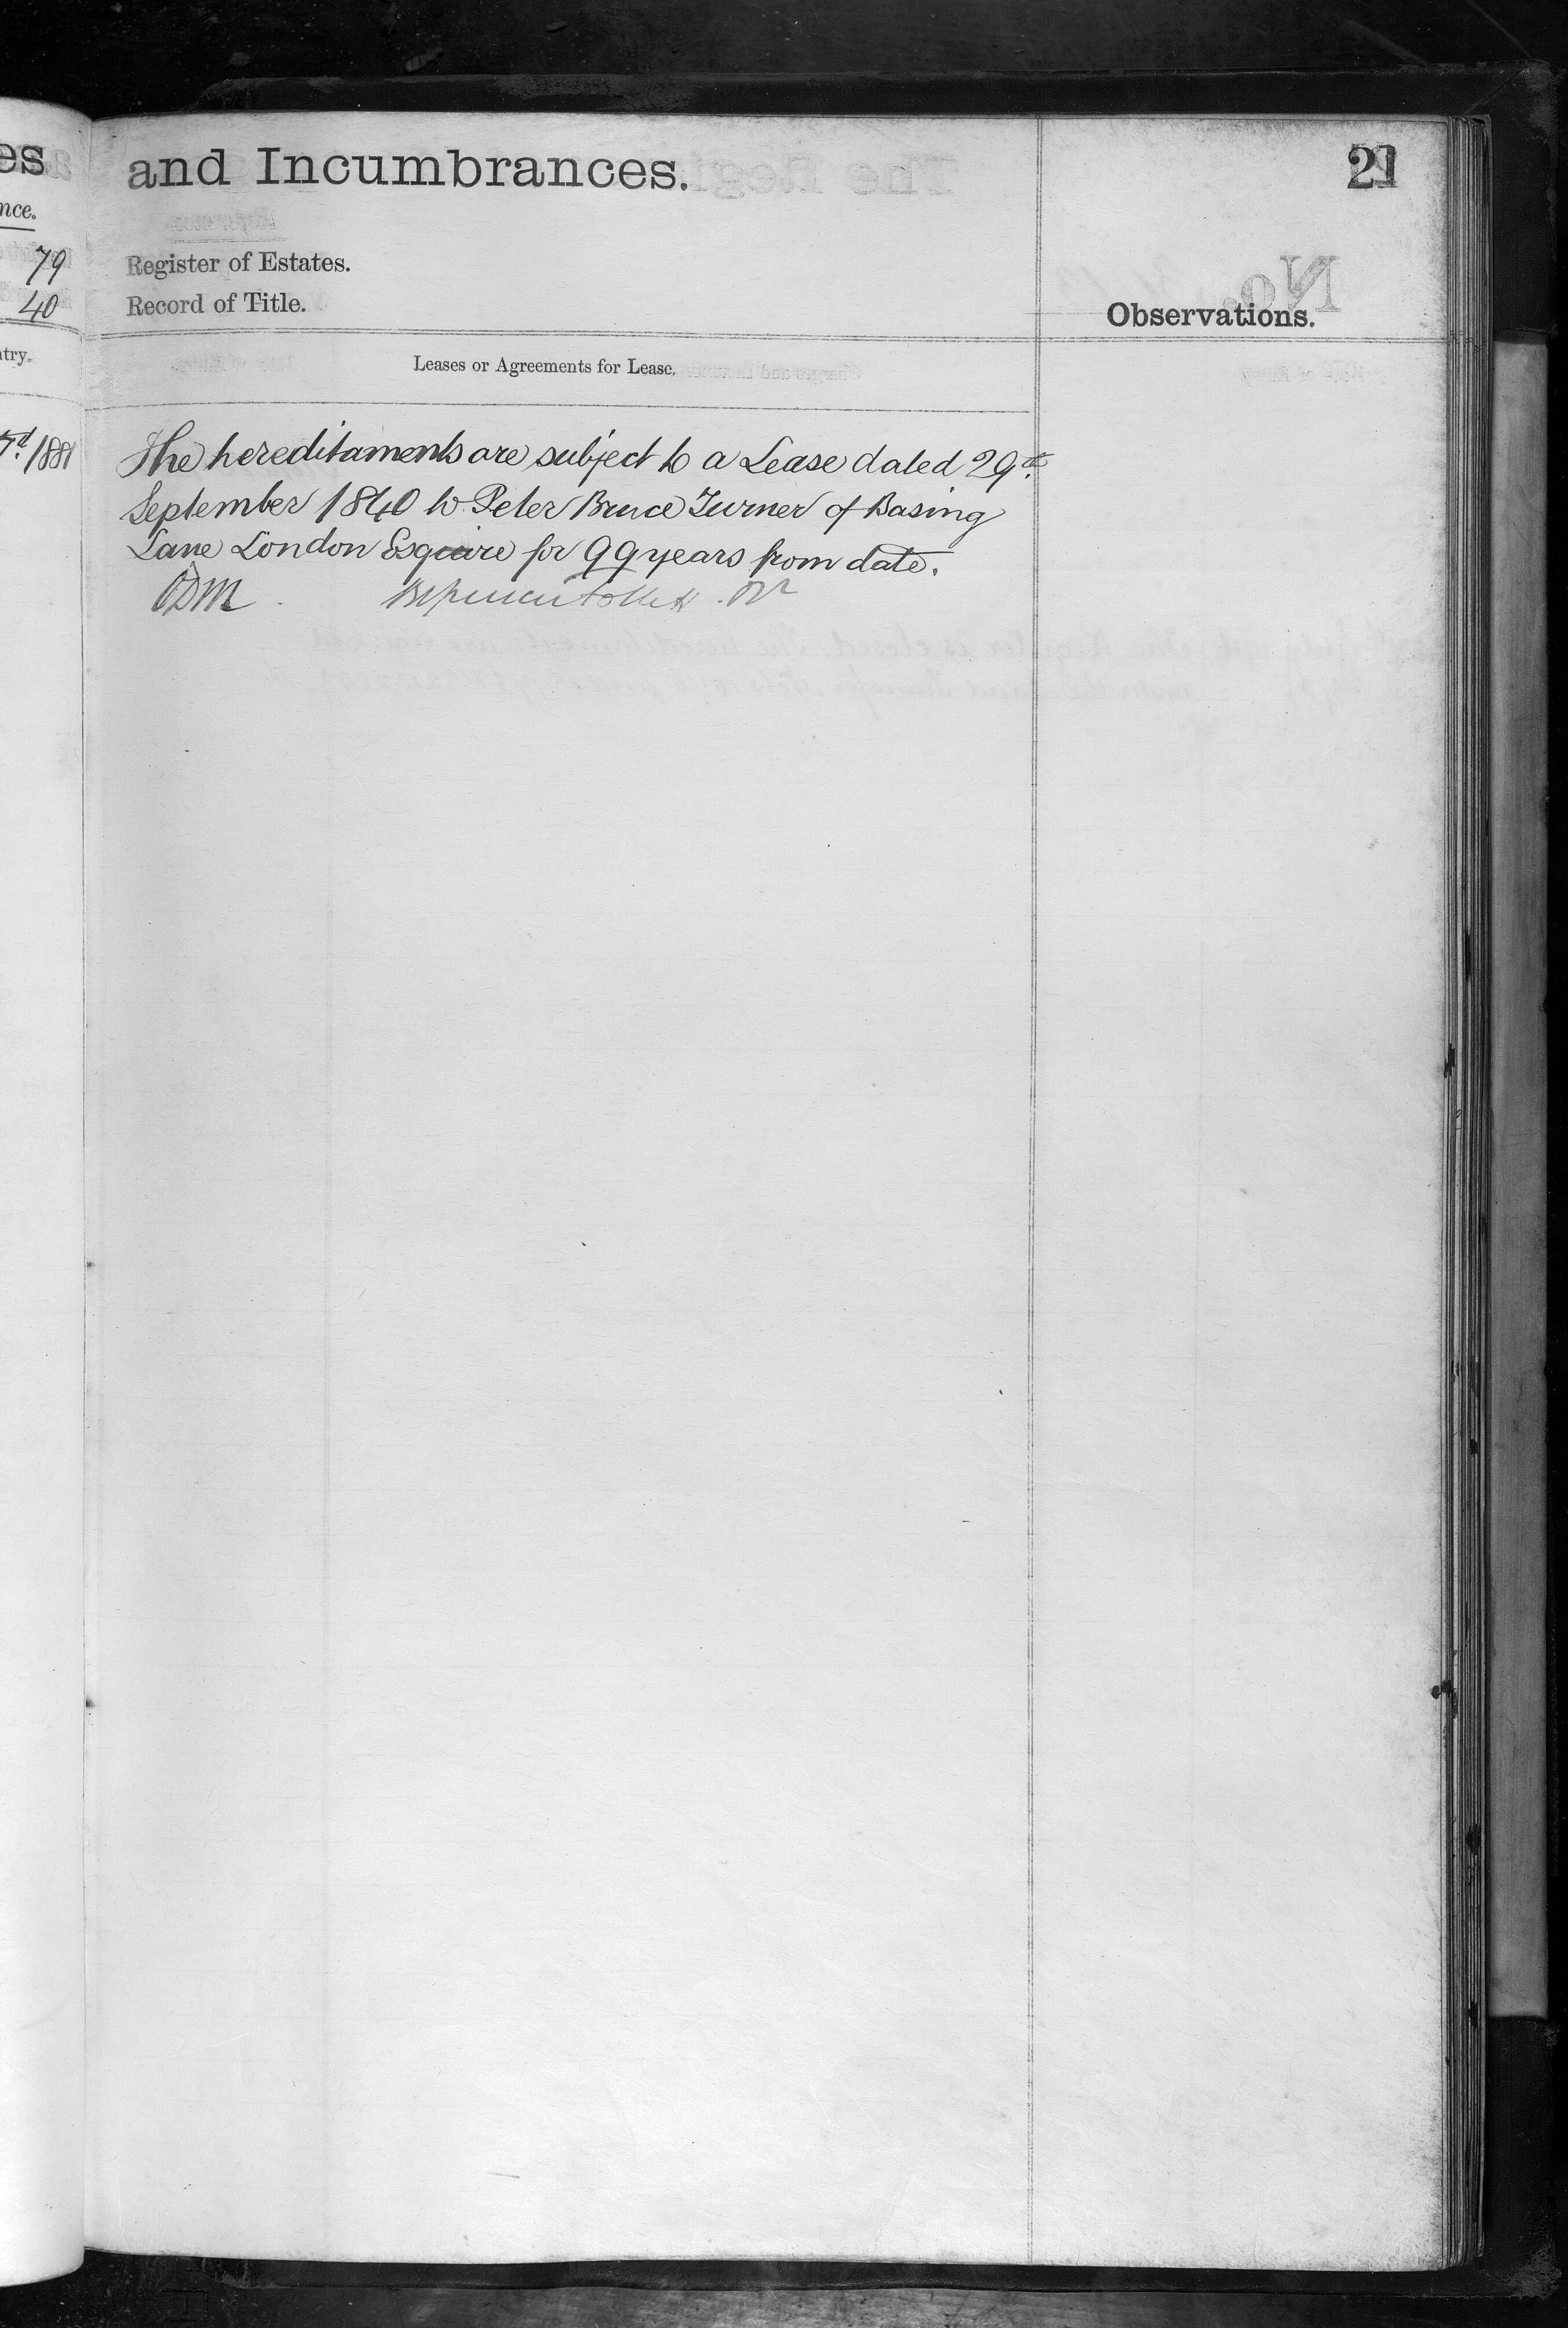 es
nce.
79
40
try.
1881
and Incumbrances.
21
Register of Estates.
Record of Title.
Observations.
Leases or Agreements for Lease.
The hereditaments are subject to a Lease dated 29th
September 1840 to Peter Bruce Turner of Basing
Lane London Esquire for 99 years from date.